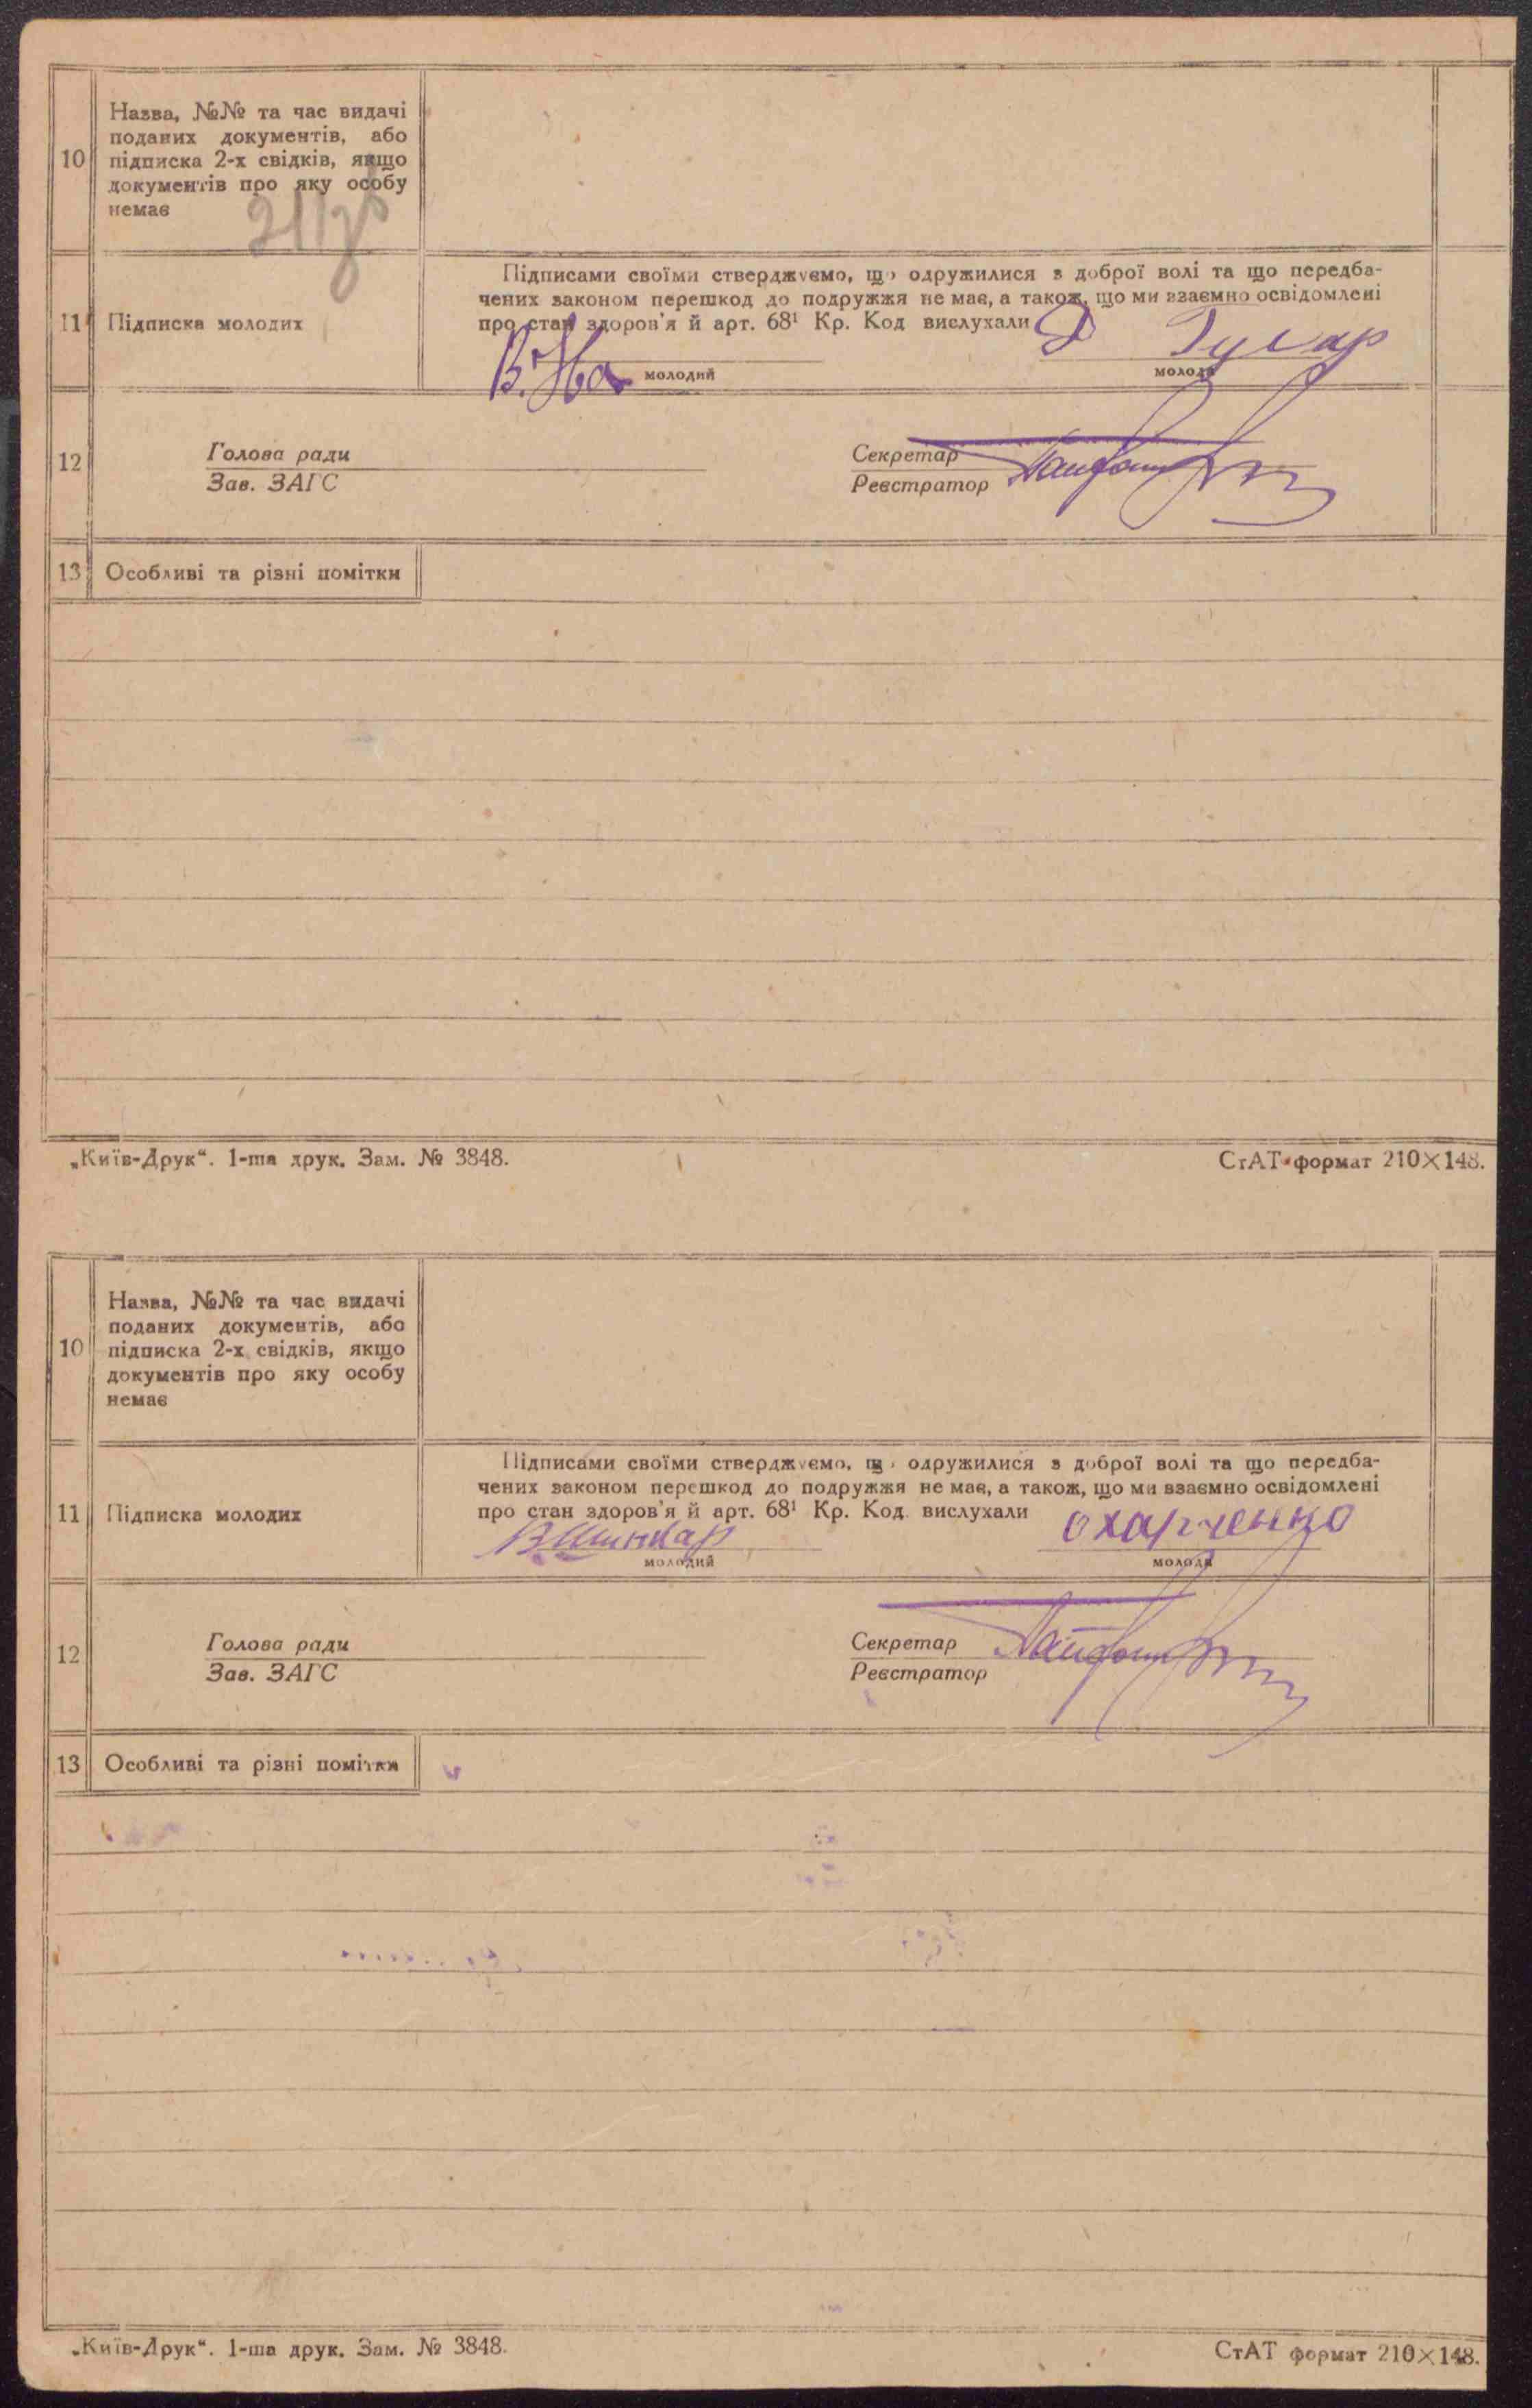 10
Назва, №№ та час видачі
поданих документів, або
підписка 2-х свідків, якщо
документів про яку особу
немає
11
Підписка молодих
Підписами своїми стверджуємо, що одружилися з доброї волі та що передба-
чених законом перешкод до подружжя не має, а також, що ми взаємно освідомлені
про стан здоров'я й арт. 68¹ Кр. Код вислухали
В. Ива
молодий
молода
12
Голова ради
Зав. ЗАГС
Секретар
Реєстратор
13
Особливі та різні помітки
„Київ-Друк“. 1-ша друк. Зам. № 3848.
СтАТ формат 210×148.
10
Назва, №№ та час видачі
поданих документів, або
підписка 2-х свідків, якщо
документів про яку особу
немає
11
Підписка молодих
Підписами своїми стверджуємо, що одружилися з доброї волі та що передба-
чених законом перешкод до подружжя не має, а також, що ми взаємно освідомлені
про стан здоров'я й арт. 68¹ Кр. Код. вислухали
В Шинкар
охарченко
молодий
молода
12
Голова ради
Зав. ЗАГС
Секретар
Реєстратор
13
Особливі та різні помітки
„Київ-Друк“. 1-ша друк. Зам. № 3848.
СтАТ формат 210×148.